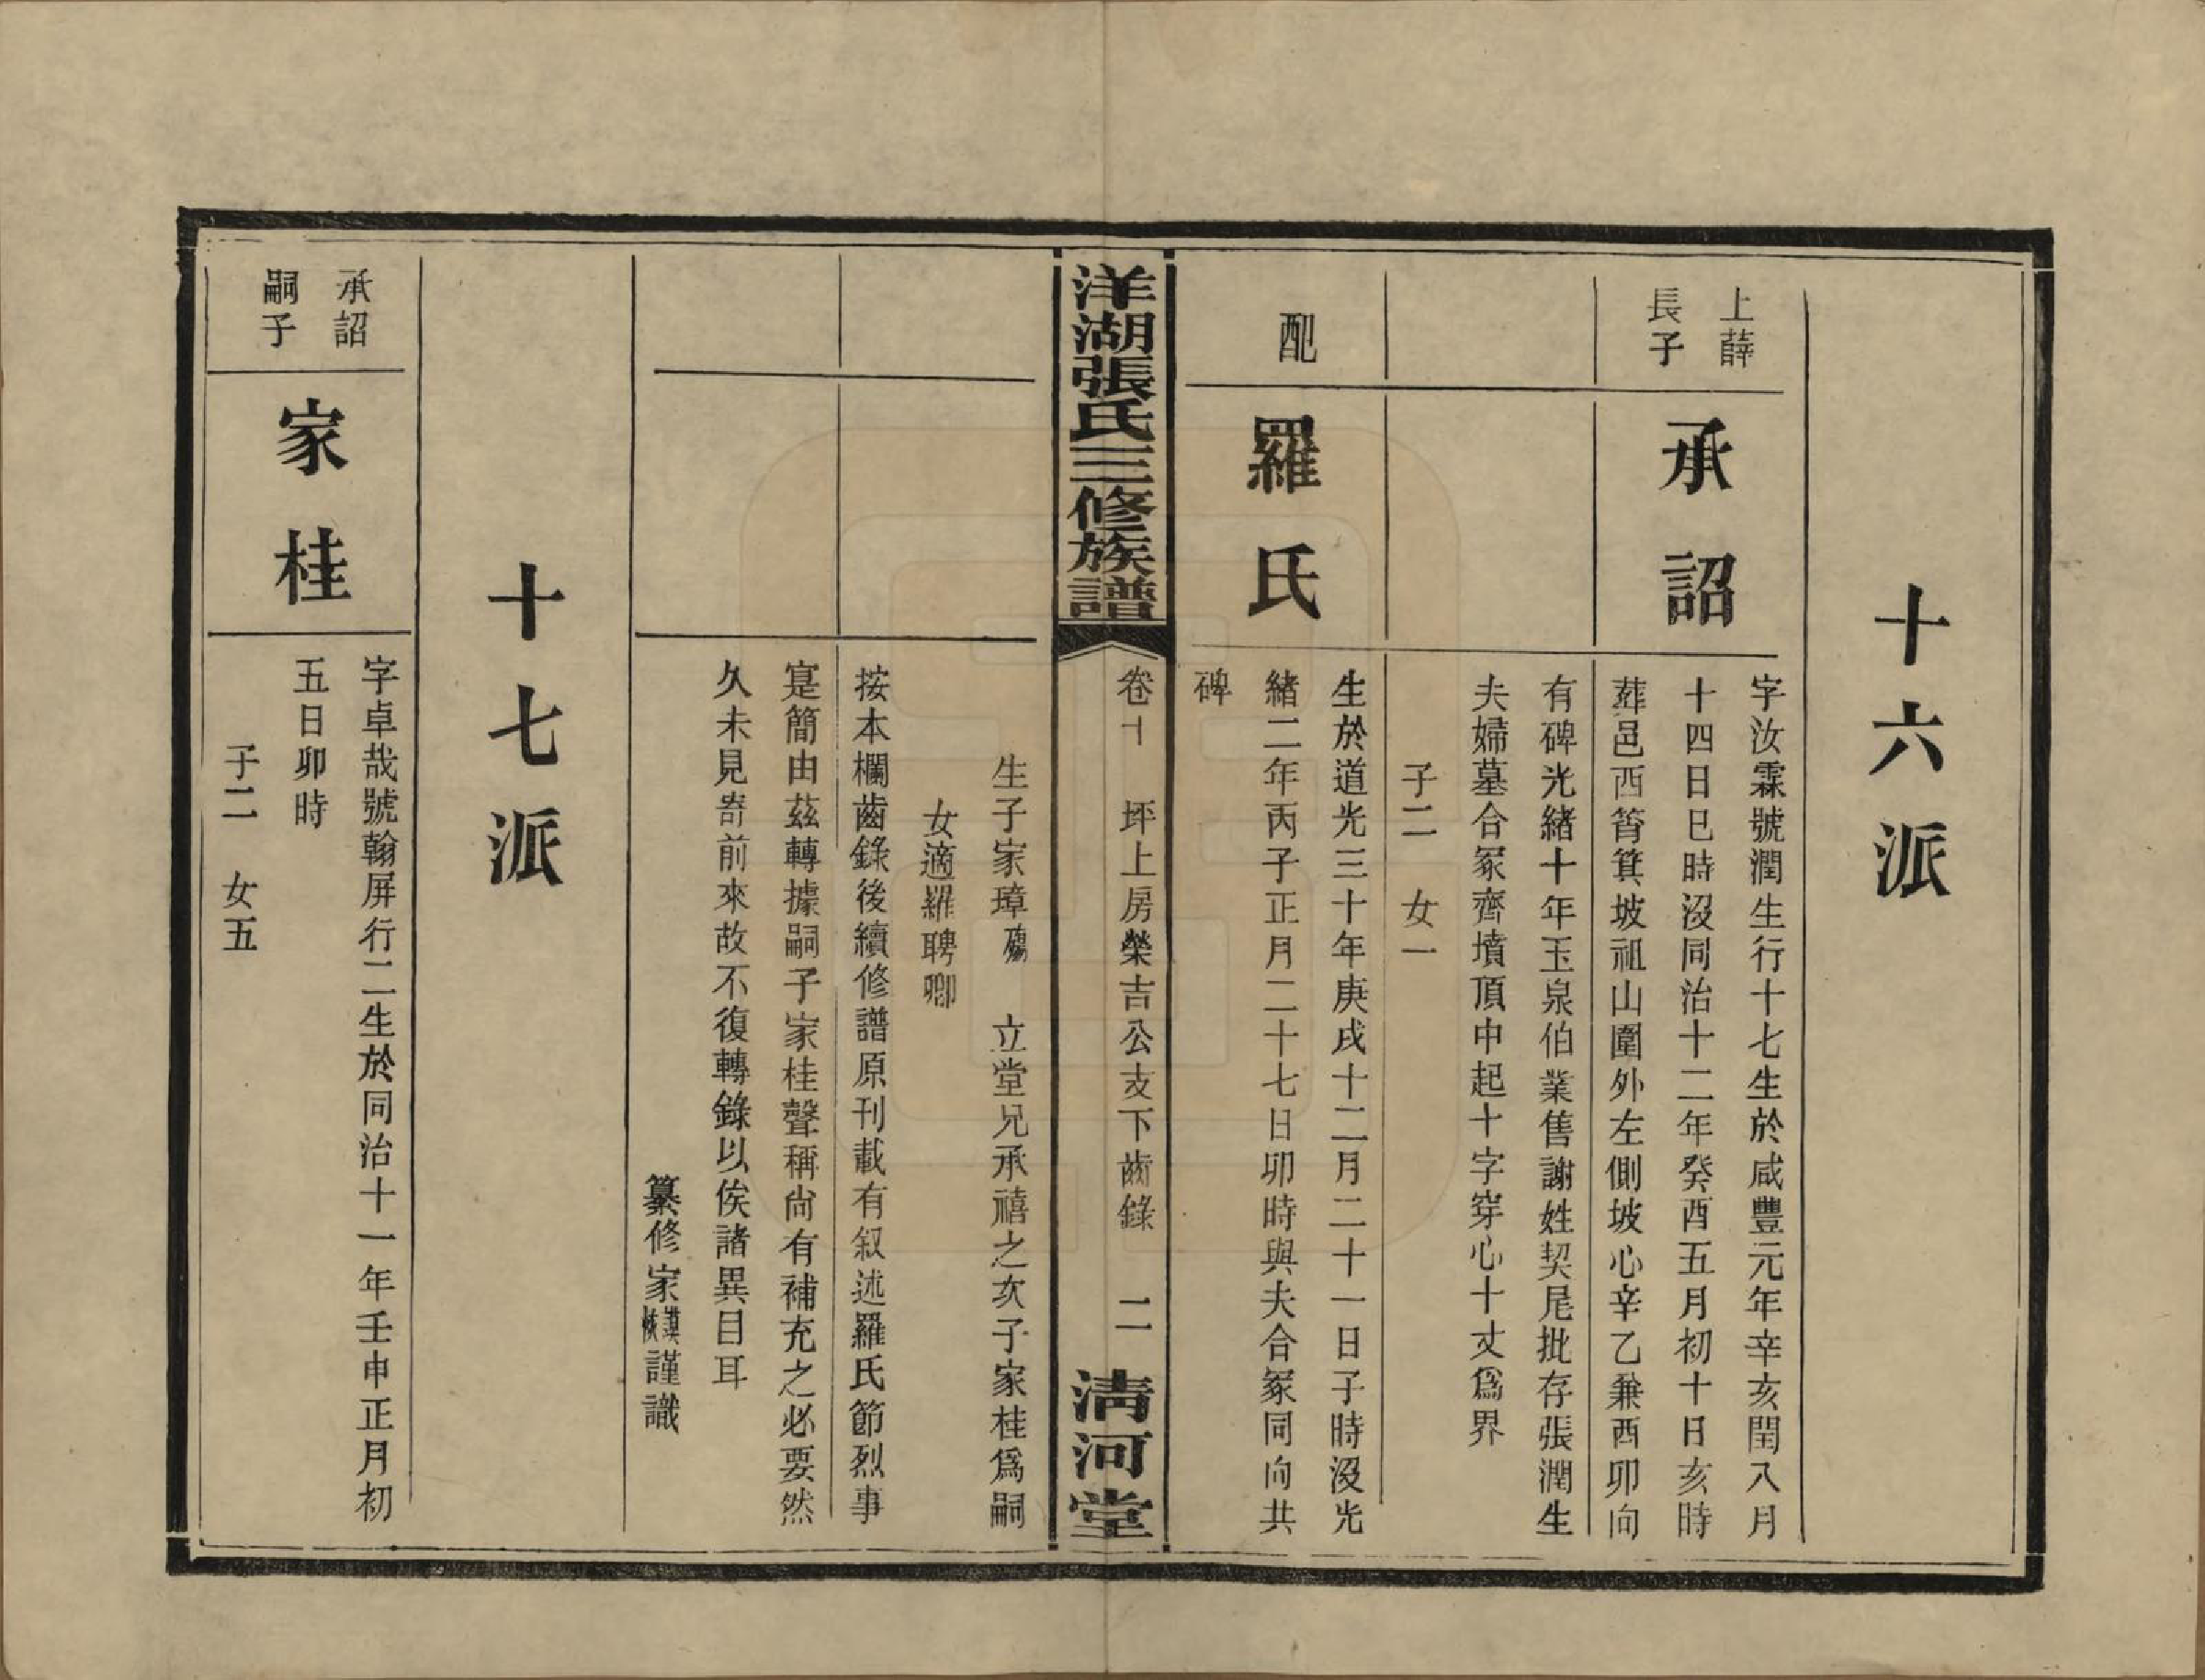 十六派
上薛
長子
承詔
字汝霖號潤生行十七生於咸豐元年辛亥閏八月
十四日巳時沒同治十二年癸酉五月初十日亥時
葬邑西筲箕坡祖山圍外左側坡心辛乙兼酉卯向
有碑光緒十年玉泉伯業售謝姓契尾批存張潤生
夫婦墓合冢齊墳頂中起十字穿心十丈爲界
子二 女一
配
羅氏
生於道光三十年庚戌十二月二十一日子時沒光
緒二年丙子正月二十七日卯時與夫合冢同向共
碑
洋湖張氏三修族譜
卷十 坪上房榮吉公支下齒錄 二
清河堂
生子家璋殤 立堂兄承禧之次子家桂爲嗣
女適羅聘卿
按本欄齒錄後續修譜原刊載有叙述羅氏節烈事
寔簡由茲轉據嗣子家桂聲稱尙有補充之必要然
久未見寄前來故不復轉錄以俟諸異目耳
纂修家謹識
十七派
承詔
嗣子
家桂
字卓哉號翰屏行二生於同治十一年壬申正月初
五日卯時
子二 女五